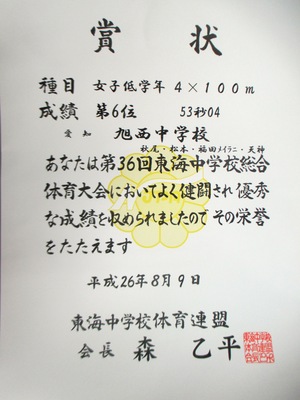 賞状
種目 女子低学年 4×100m
成績 第6位 53秒04
愛知 旭西中学校
秋尾・松本・福田メイラニ・天神
あなたは第36回東海中学校総合
体育大会においてよく健闘され優秀
な成績を収められましたのでその栄誉
をたたえます
平成26年8月9日
東海中学校体育連盟
会長 森 乙平